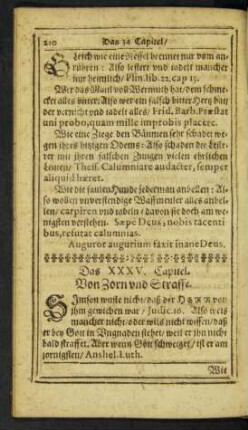 210 Das 34 Capitel/
Gleich wie eine Nessel brennet nur vom an-
rühren: Also lestert und tadelt mancher
nur heimlich/ Plin. lib. 22. cap 15.
Wer das Maul voll Wermuth hat/ dem schme-
cket alles bitter: Also wer ein falsch bitter Hertz hat/
der verachtet und tadelt alles/ Frid. Barb. Præstat
uni probo, quam mille improbis placere.
Wie eine Ziege den Bäumen sehr schadet we-
gen ihres hitzigen Odems: Also schaden die
mit ihren falschen Zungen vielen ehrlichen
Leuten/ Calumniare audacter, semper
aliquid hæret.
Wie die faulen Hunde jederman anbellen: Al-
so wollen unverstendige Waschmeuler alles anbel-
len/ carpiren und tadeln/ davon sie doch am we-
nigsten verstehen. Sæpe Deus, nobis tacenti
bus, refutat calumnias.
Auguror augurium faxit inane Deus.
Das XXXV. Capitel.
Von Zorn und Straffe.
Simson wuste nicht/ daß der HERR von
ihm gewichen war/ Judic. 16. Also weis
mancher nicht/ oder wils nicht wissen/ daß
er bey Gott in Ungnaden stehet/ weil er ihn nicht
bald straffet. Aber wenn Gott schweiget/ ist er am
zornigsten/ Anshel. Luth.
Wie